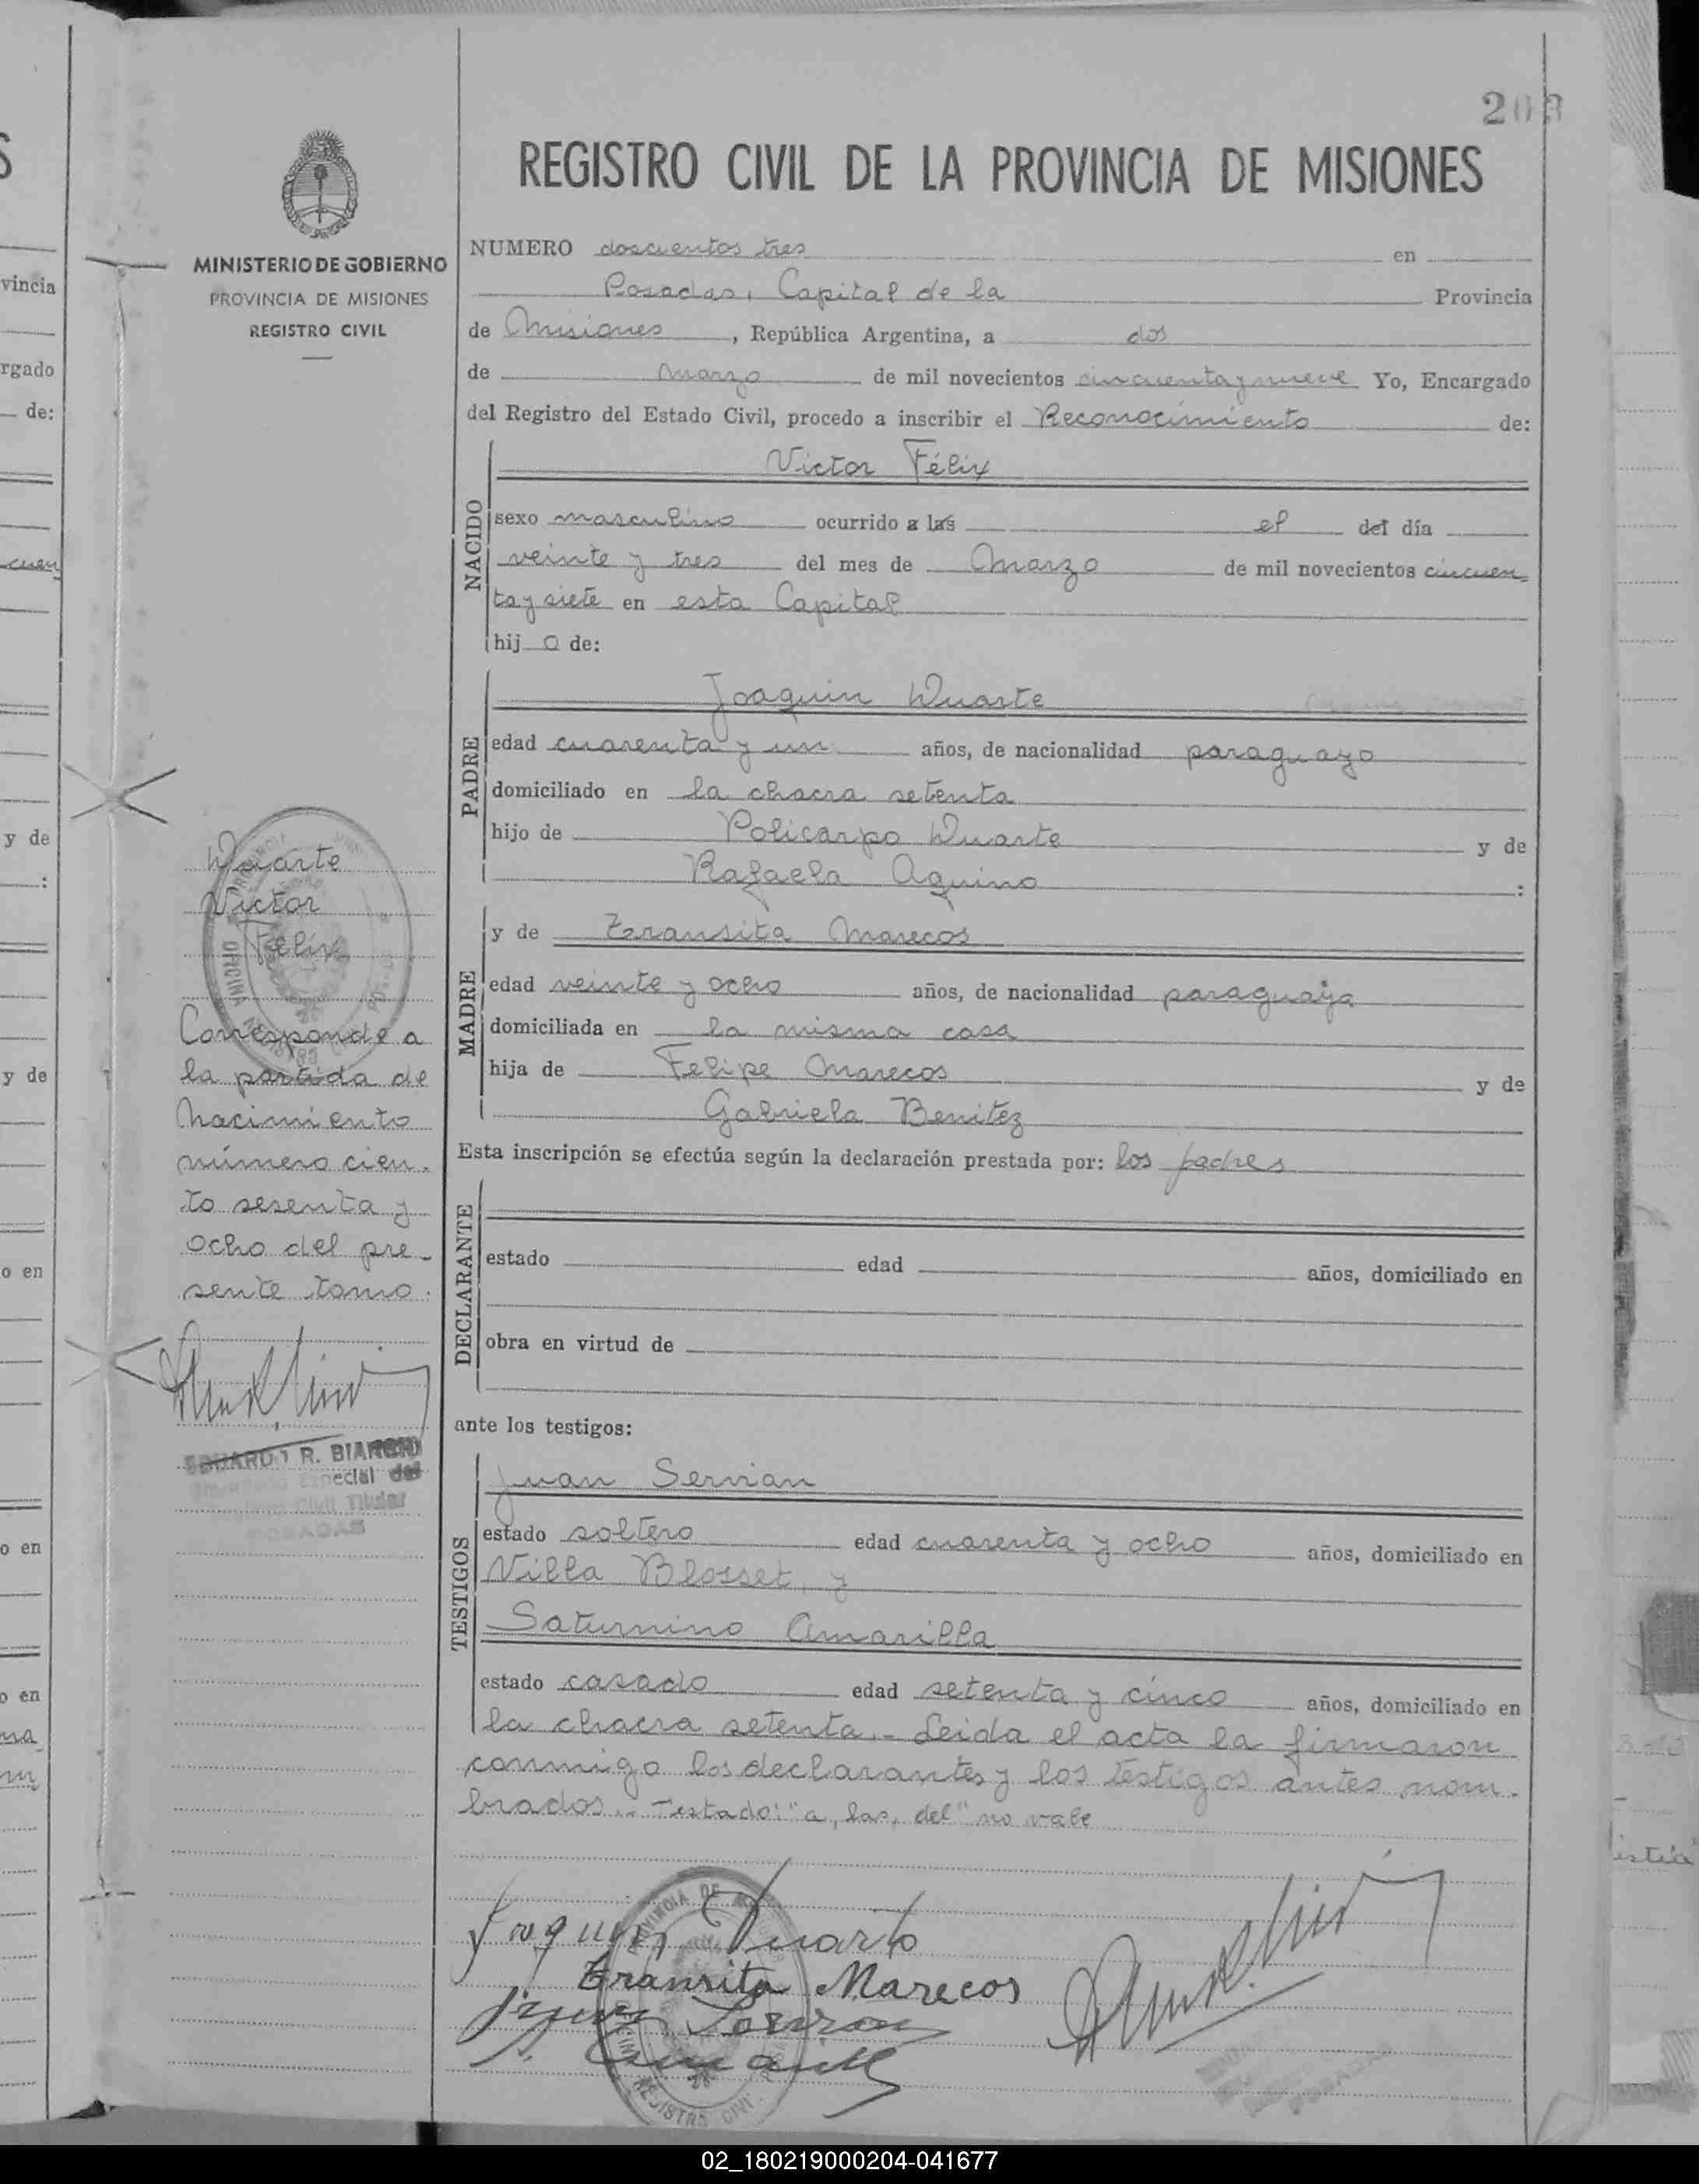 203
REGISTRO CIVIL DE LA PROVINCIA DE MISIONES
MINISTERIO DE GOBIERNO
PROVINCIA DE MISIONES
REGISTRO CIVIL
NUMERO doscientos tres en
Posadas, Capital de la Provincia
de Misiones, República Argentina, a dos
de marzo de mil novecientos cincuenta y nueve Yo, Encargado
del Registro del Estado Civil, procedo a inscribir el Reconocimiento de:
NACIDO
Victor Félix
sexo masculino ocurrido a las el del día
veinte y tres del mes de Marzo de mil novecientos cincuen
ta y siete en esta Capital
hij o de:
PADRE
Joaquin Duarte
edad cuarenta y un años, de nacionalidad paraguayo
domiciliado en la chacra setenta
hijo de Policarpo Duarte y de
Rafaela Aquino :
MADRE
y de Tránsita Marecos
edad veinte y ocho años, de nacionalidad paraguaya
domiciliada en la misma casa
hija de Felipe Marecos y de
Gabriela Benitez
Esta inscripción se efectúa según la declaración prestada por: los padres
DECLARANTE
estado edad años, domiciliado en
obra en virtud de
ante los testigos:
TESTIGOS
Juan Servian
estado soltero edad cuarenta y ocho años, domiciliado en
Villa Blosset, y
Saturnino Amarilla
estado casado edad setenta y cinco años, domiciliado en
la chacra setenta.- Leida el acta la firmaron
conmigo los declarantes y los testigos antes nom-
brados.- Testado: "a, las, del" no vale
Duarte
Victor
Félix
Corresponde a
la partida de
Nacimiento
número cien-
to sesenta y
ocho del pre-
sente tomo.
EDUARDO R. BIANCHI
Especial del
Civil Titular
POSADAS
Joaquin Duarte
Tránsita Marecos
POSADAS
vincia
rgado
de:
cuen
y de
:
y de
o en
o en
o en
02_180219000204-041677